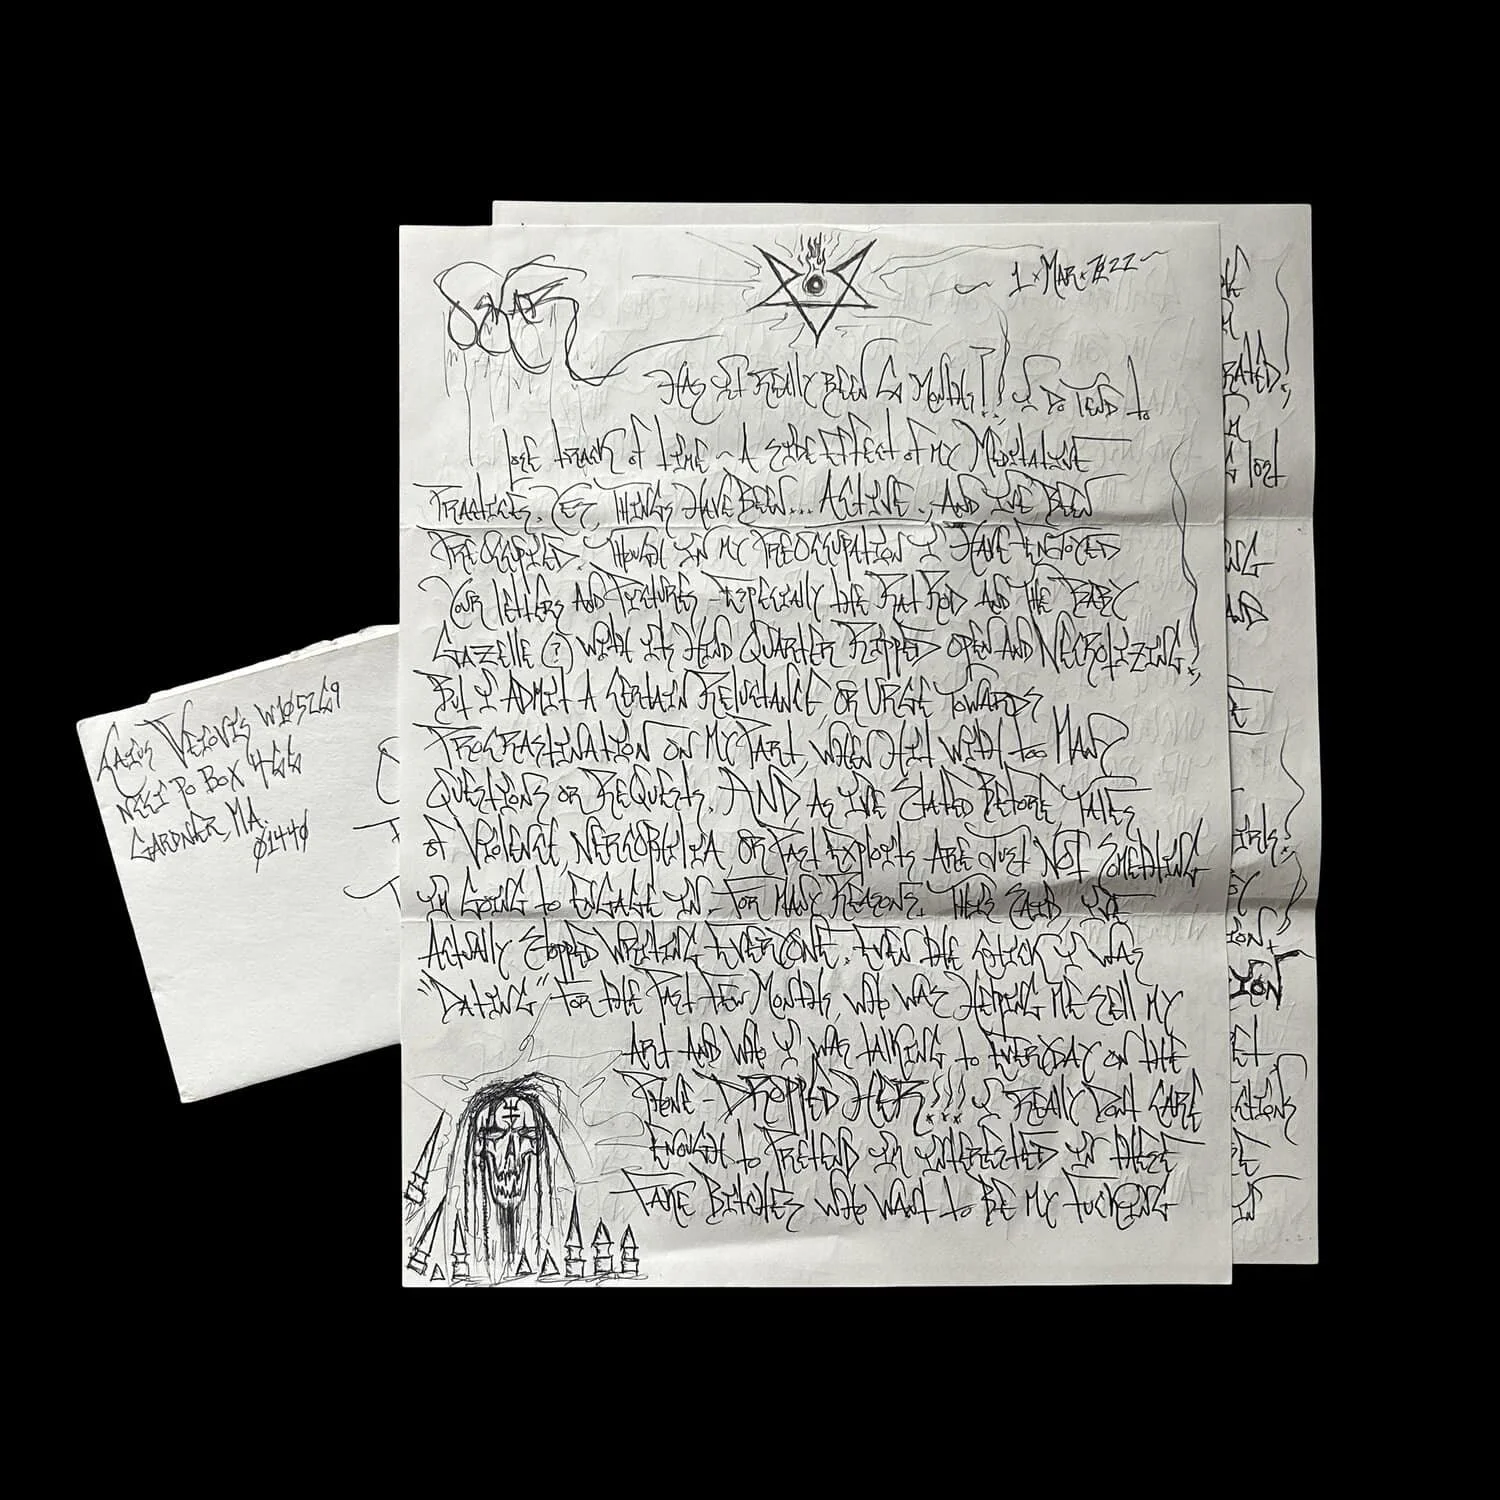 1 × MAR × 2022
HAS IT REALLY BEEN A MONTH!! I DO TEND TO
LOSE TRACK OF TIME ~ A SIDE EFFECT OF MY MEDITATIVE
PRACTICES. YES, THINGS HAVE BEEN... ACTIVE., AND I'VE BEEN
PREOCCUPIED. THOUGH IN MY PREOCCUPATION I HAVE ENJOYED
YOUR LETTERS AND PICTURES - ESPECIALLY THE RAT ROD AND THE BABY
GAZELLE (?) WITH ITS HIND QUARTER RIPPED OPEN AND NECROTIZING.
BUT I ADMIT A CERTAIN RELUCTANCE OR URGE TOWARDS
PROCRASTINATION ON MY PART, WHEN HIT WITH TOO MANY
QUESTIONS OR REQUESTS. AND, AS I'VE STATED BEFORE, TALES
OF VIOLENCE, NECROPHILIA, OR PAST EXPLOITS ARE JUST NOT SOMETHING
I'M GOING TO ENGAGE IN - FOR MANY REASONS. THIS SAID, I'VE
ACTUALLY STOPPED WRITING EVERYONE. EVEN THE CHICK I WAS
"DATING" FOR THE PAST FEW MONTHS, WHO WAS HELPING ME SELL MY
ART AND WHO I WAS TALKING TO EVERYDAY ON THE
PHONE - DROPPED HER!!! I REALLY DON'T CARE
ENOUGH TO PRETEND I'M INTERESTED IN THESE
FAKE BITCHES WHO WANT TO BE MY FUCKING
CAIUS VEIOVIS W105269
NCCI PO BOX 466
GARDNER, MA.
01440
LOST
AND